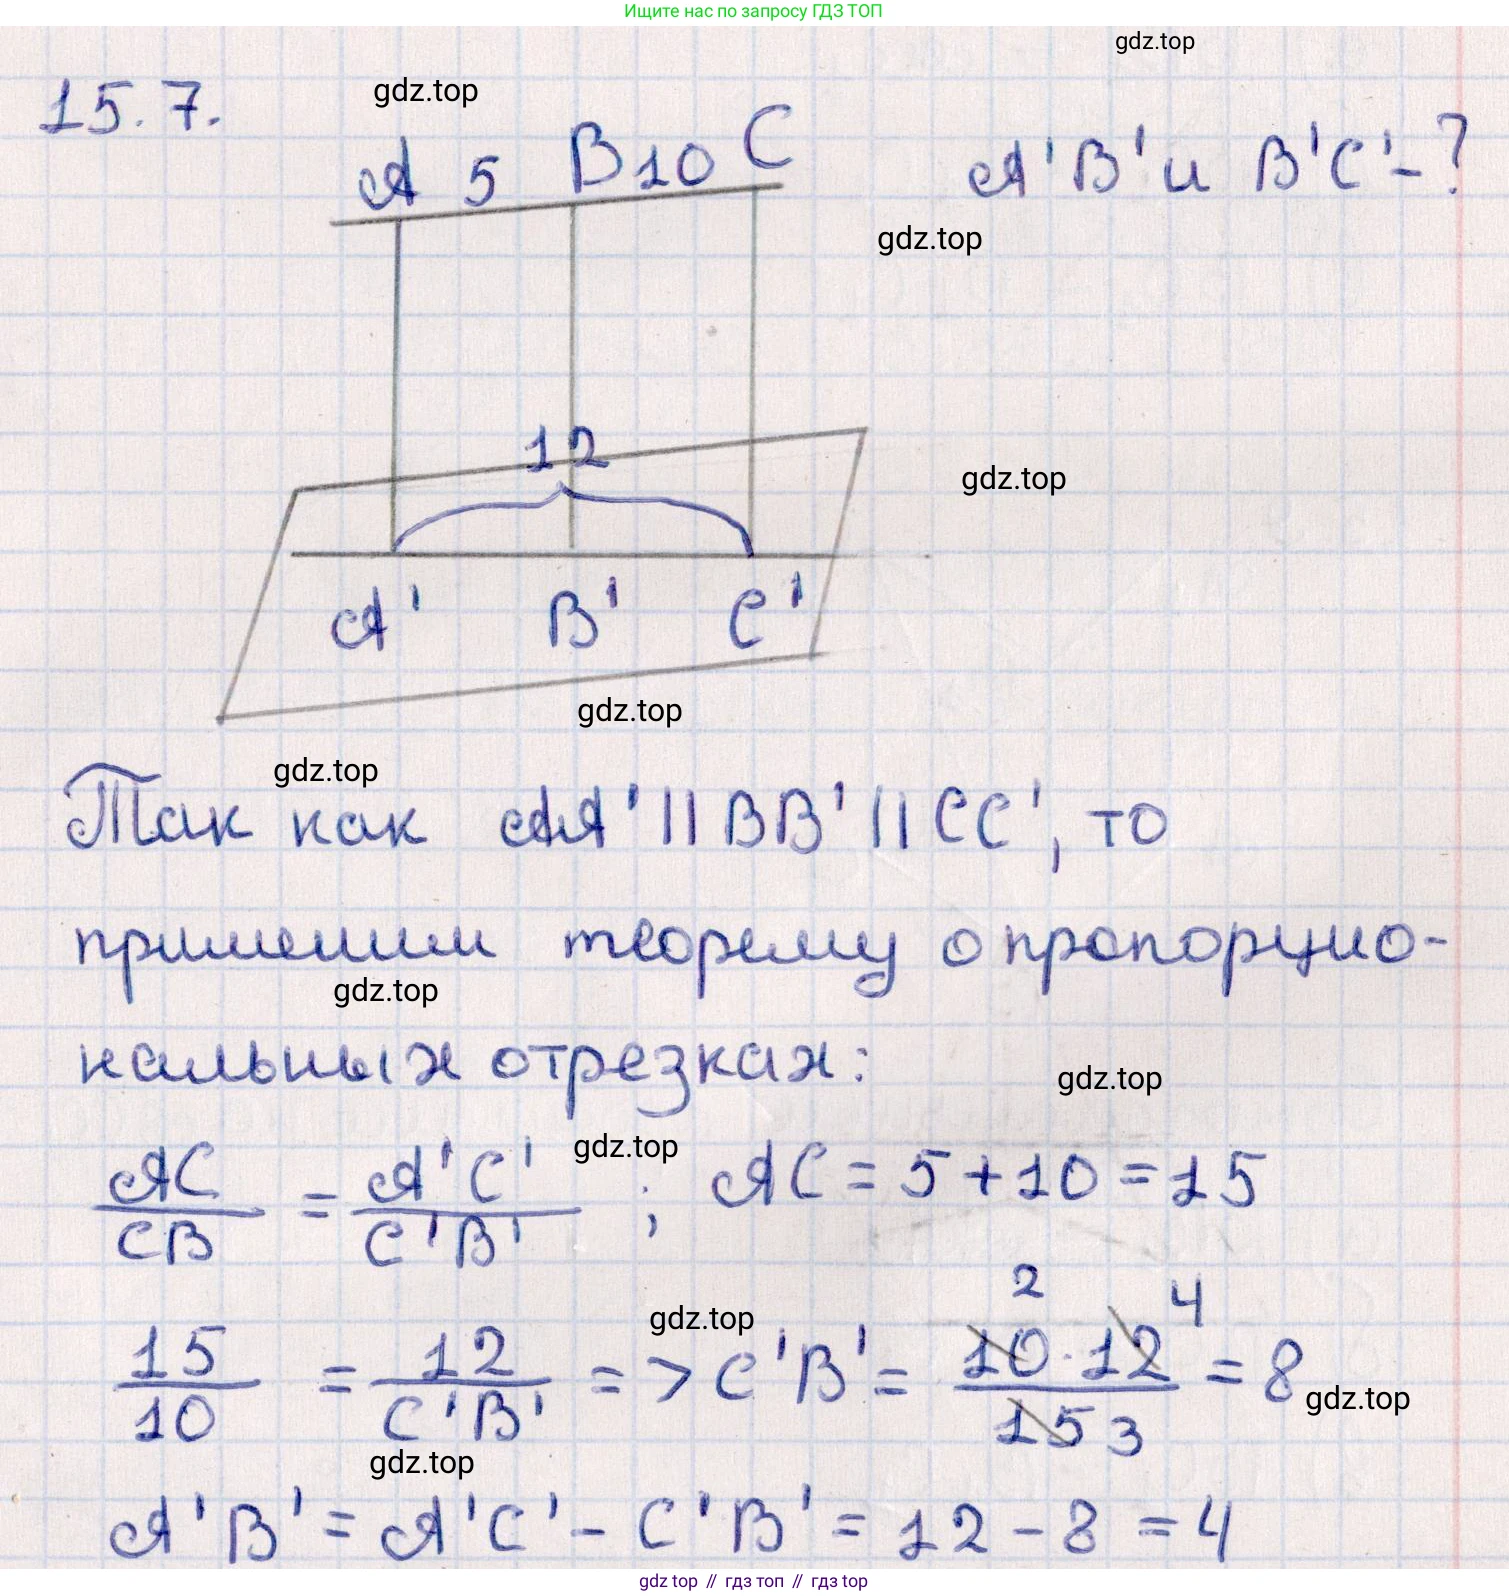 Ищите нас по запросу ГДЗ ТОП
gdz.top
15.7.
gdz.top
A 5 B 10 C
A'B' и B'C' - ?
gdz.top
12
gdz.top
A' B' C'
gdz.top
gdz.top
Так как AA' || BB' || CC', то
применим теорему о пропорцио-
gdz.top
нальных отрезках:
gdz.top
gdz.top
AC/CB = A'C'/C'B' ; AC = 5 + 10 = 15
gdz.top
15/10 = 12/C'B' => C'B' = 10 2 · 12 4 / 15 3 = 8
gdz.top
gdz.top
A'B' = A'C' - C'B' = 12 - 8 = 4
gdz top // гдз топ // гдз top